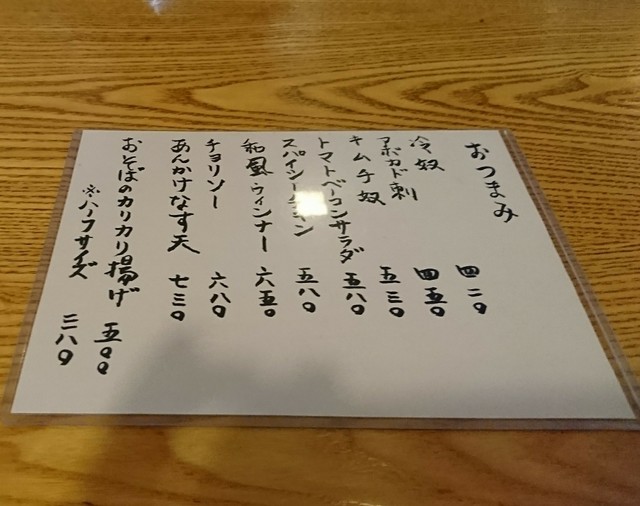 おつまみ
冷奴 四二〇
アボカド刺 四五〇
キムチ奴 五三〇
トマトベーコンサラダ 五八〇
スパイシーチキン 五八〇
和風ウィンナー 六五〇
チョリソー 六八〇
あんかけなす天 七三〇
おそばのカリカリ揚げ 五〇〇
※ハーフサイズ 三八〇